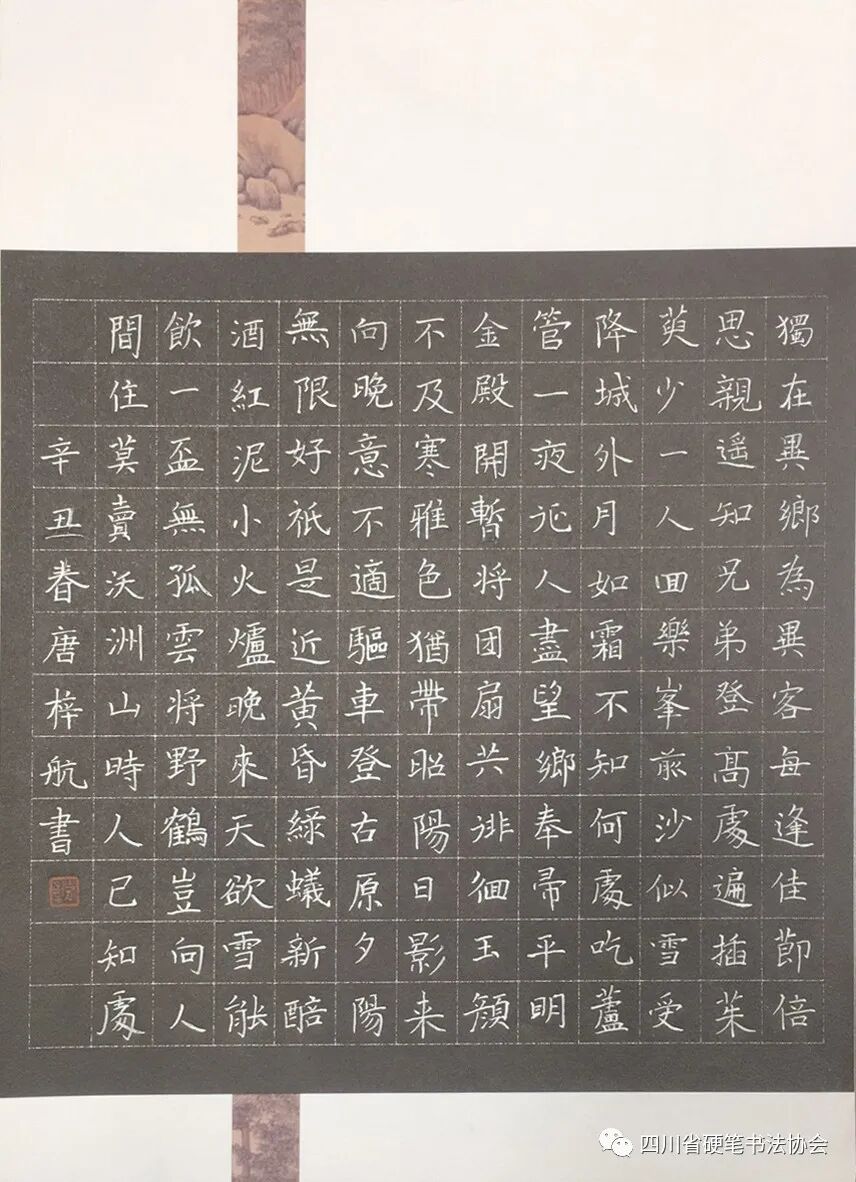 獨在異鄉為異客每逢佳節倍
思親遥知兄弟登髙處遍插茱
萸少一人回樂峯前沙似雪受
降城外月如霜不知何處吃蘆
管一夜征人盡望鄉奉帚平明
金殿開暫将团扇共徘徊玉顔
不及寒雅色猶帶昭陽日影来
向晚意不適驅車登古原夕陽
無限好祇是近黄昏緑蟻新醅
酒紅泥小火爐晚來天欲雪能
飲一盃無孤雲将野鶴豈向人
間住莫賣沃洲山時人已知處
辛丑春唐梓航書
四川省硬笔书法协会